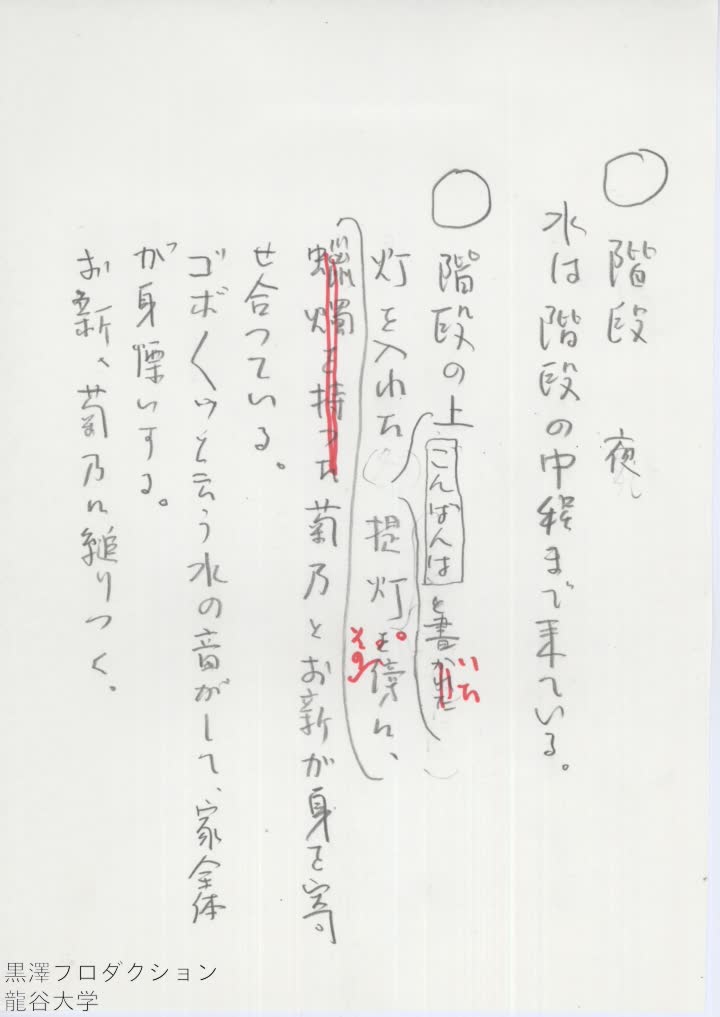 ○階段　夜
水は階段の中程まで来ている。
○階段の上
こんばんはと書かれた
いた
灯を入れた提灯を傍に、
。その
蠟燭を持った菊乃とお新が身を寄
せ合っている。
ゴボ〱ッと云う水の音がして、家全体
が身慄いする。
お新、菊乃に縋りつく。
黒澤プロダクション
龍谷大学